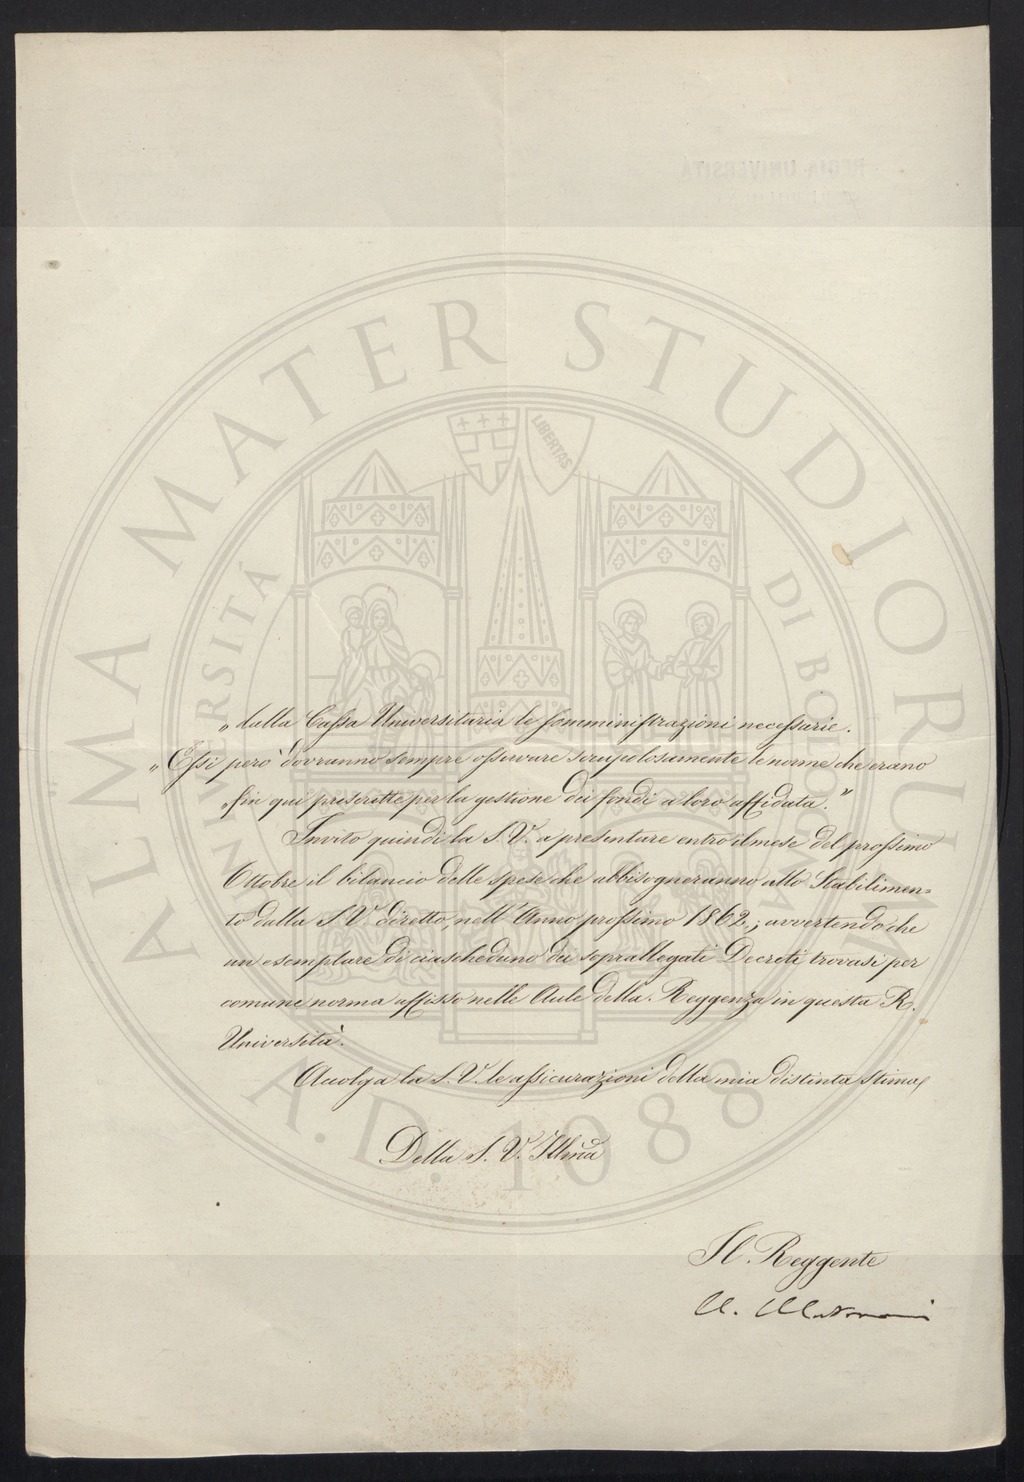 „ dalla Cassa Universitaria le somministrazioni necessarie.
„ Essi però dovranno sempre osservare scrupolosamente le norme che erano
„ fin qui prescritte per la gestione dei fondi a loro affidata.”
Invito quindi la S. V. a presentare entro il mese del prossimo
Ottobre il bilancio delle spese che abbisogneranno allo Stabilimen-
to dalla S. V. diretto, nell' Anno prossimo 1862.; avvertendo che
un esemplare di ciascheduno dei soprallegati Decreti trovasi per
comune norma affisso nelle Aule della Reggenza in questa R.
Università.
Accolga la S. V. le assicurazioni della mia distinta stima
Della S. V. Illma
Il Reggente
ALMA MATER STUDIORUM
UNIVERSITÀ DI BOLOGNA
LIBERTAS
A.D. 1088
REGIA UNIVERSITÀ